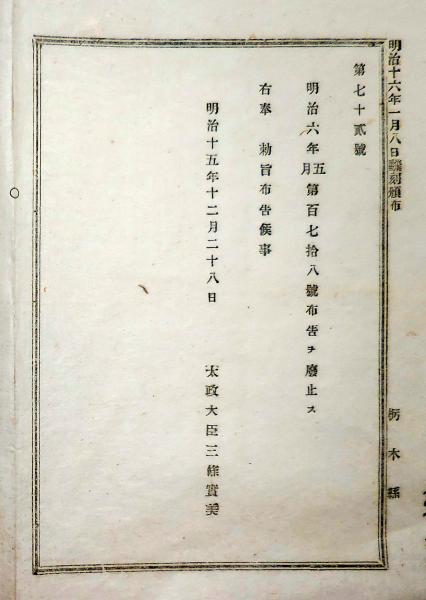 明治十六年一月八日飜刻頒布
栃木縣
第七十貳號
明治六年五月第百七拾八號布告ヲ廢止ス
右奉 勅旨布告候事
明治十五年十二月二十八日 太政大臣三條實美